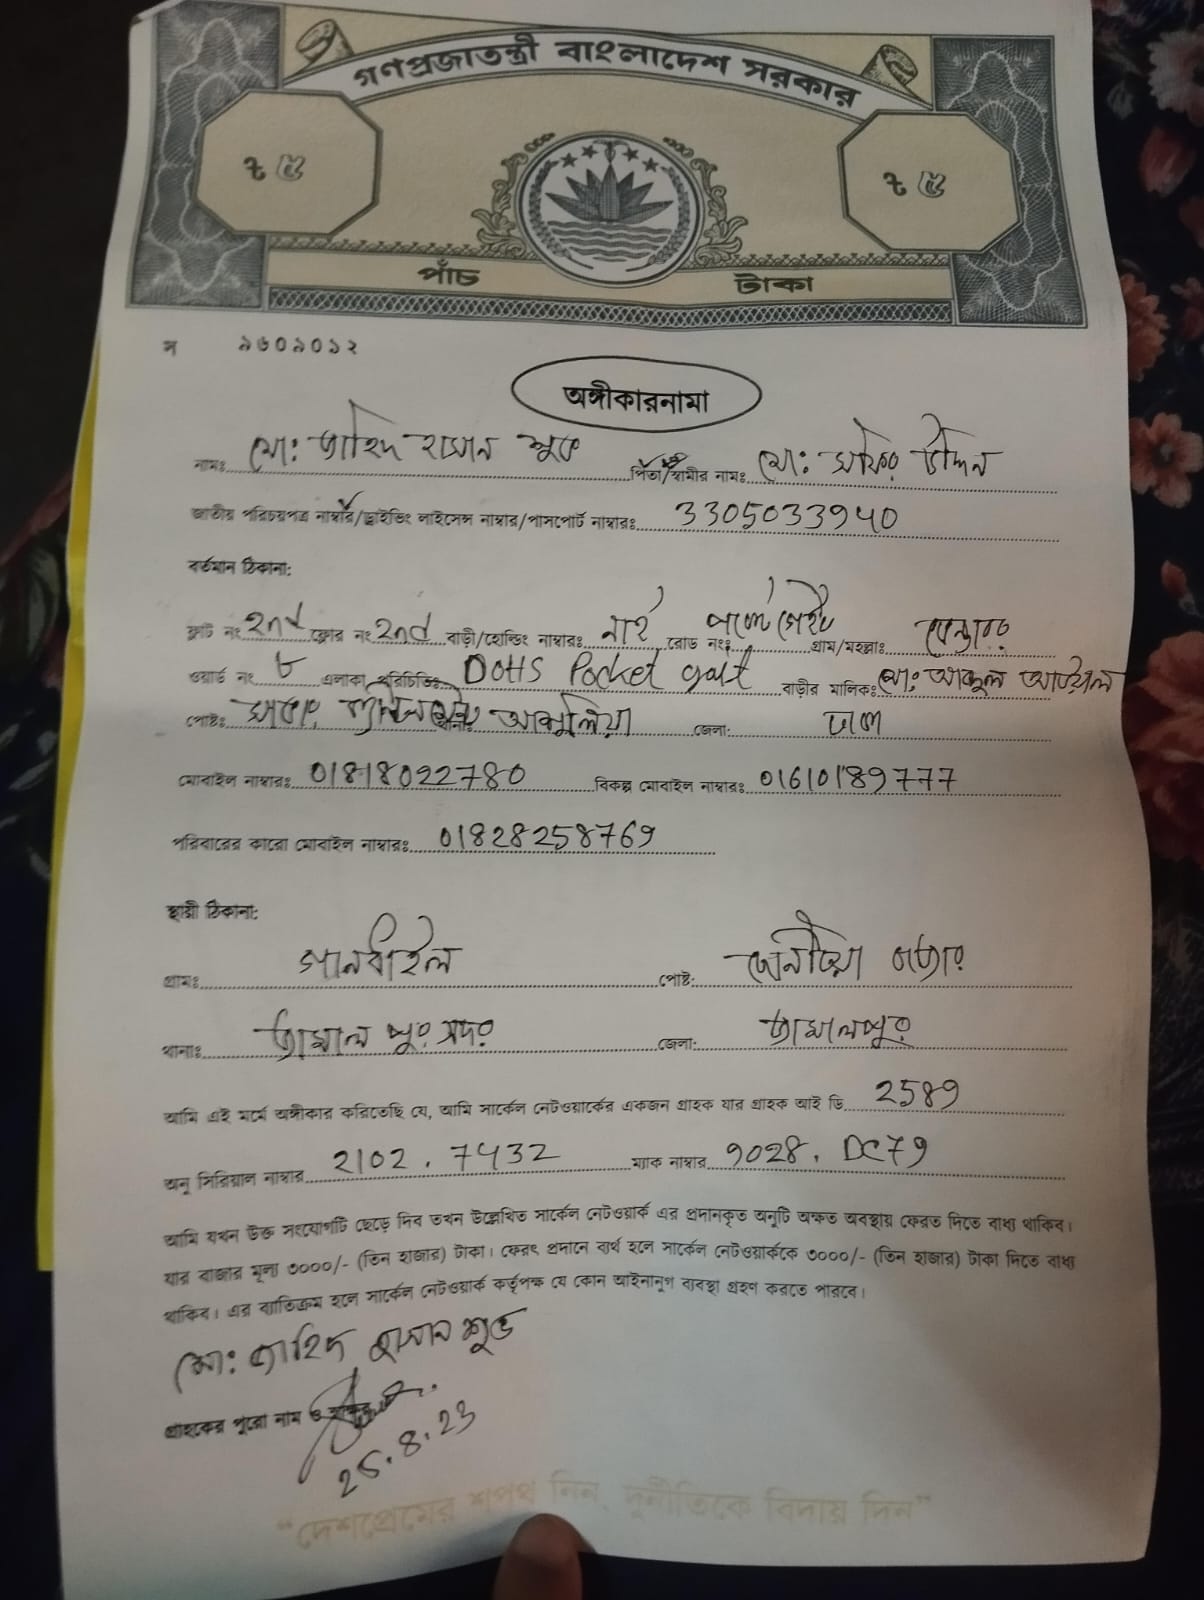 গণপ্রজাতন্ত্রী বাংলাদেশ সরকার
৳ ৫ ৳ ৫
পাঁচ টাকা
স ৯৬০৯০১২
অঙ্গীকারনামা
নামঃ মো: জাহিদ হাসান শুভ পিতা/স্বামীর নামঃ মো: উদ্দিন
জাতীয় পরিচয়পত্র নাম্বার/ড্রাইভিং লাইসেন্স নাম্বার/পাসপোর্ট নাম্বারঃ 3305033940
বর্তমান ঠিকানা:
ফ্লাট নং 2nd ফ্লোর নং 2nd বাড়ী/হোল্ডিং নাম্বারঃ নাই রোড নংঃ পকেট গেইট গ্রাম/মহল্লাঃ
ওয়ার্ড নং ৮ এলাকা পরিচিতিঃ DOHS Pocket gate বাড়ীর মালিকঃ মো: আব্দুল আউয়াল
পোষ্টঃ সাভার থানাঃ আশুলিয়া জেলা: ঢাকা
মোবাইল নাম্বারঃ 01818022780 বিকল্প মোবাইল নাম্বারঃ 01610189777
পরিবারের কারো মোবাইল নাম্বারঃ 01828258769
স্থায়ী ঠিকানা:
গ্রামঃ পোষ্ট:
থানাঃ জামালপুর সদর জেলা: জামালপুর
আমি এই মর্মে অঙ্গীকার করিতেছি যে, আমি সার্কেল নেটওয়ার্কের একজন গ্রাহক যার গ্রাহক আই ডি 2589
অনু সিরিয়াল নাম্বার 2102.7432 ম্যাক নাম্বার 9028. DC79
আমি যখন উক্ত সংযোগটি ছেড়ে দিব তখন উল্লেখিত সার্কেল নেটওয়ার্ক এর প্রদানকৃত অনুটি অক্ষত অবস্থায় ফেরত দিতে বাধ্য থাকিব।
যার বাজার মূল্য ৩০০০/- (তিন হাজার) টাকা। ফেরৎ প্রদানে ব্যর্থ হলে সার্কেল নেটওয়ার্ককে ৩০০০/- (তিন হাজার) টাকা দিতে বাধ্য
থাকিব। এর ব্যতিক্রম হলে সার্কেল নেটওয়ার্ক কর্তৃপক্ষ যে কোন আইনানুগ ব্যবস্থা গ্রহণ করতে পারবে।
মো: জাহিদ হাসান শুভ
গ্রাহকের পুরো নাম ও স্বাক্ষর
25.8.23
“দেশপ্রেমের শপথ নিন, দুর্নীতিকে বিদায় দিন”